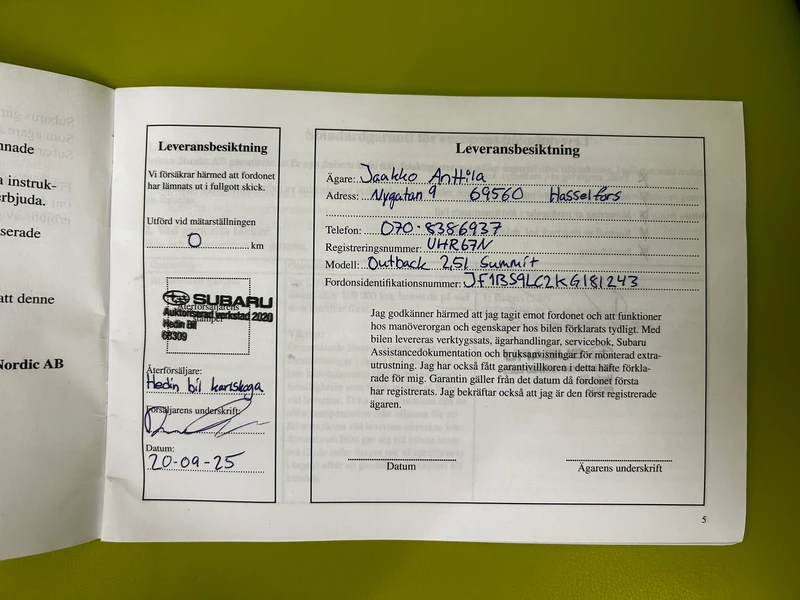 nnade
a instruk-
rbjuda.
serade
att denne
Nordic AB
Leveransbesiktning
Vi försäkrar härmed att fordonet
har lämnats ut i fullgott skick.
Utförd vid mätarställningen
0 km
SUBARU
Auktoriserad verkstad 2020
Hedin Bil
68309
Återförsäljare:
Hedin bil karlskoga
Försäljarens underskrift:
Datum:
20-09-25
Leveransbesiktning
Ägare: Jaakko Anttila
Adress: Nygatan 9 69560 Hasselfors
Telefon: 070-8386937
Registreringsnummer: UHR67N
Modell: Outback 2,5i Summit
Fordonsidentifikationsnummer: JF1BS9LC2KG181243
Jag godkänner härmed att jag tagit emot fordonet och att funktioner
hos manöverorgan och egenskaper hos bilen förklarats tydligt. Med
bilen levereras verktygssats, ägarhandlingar, servicebok, Subaru
Assistancedokumentation och bruksanvisningar för monterad extra-
utrustning. Jag har också fått garantivillkoren i detta häfte förkla-
rade för mig. Garantin gäller från det datum då fordonet första
har registrerats. Jag bekräftar också att jag är den först registrerade
ägaren.
Datum
Ägarens underskrift
5